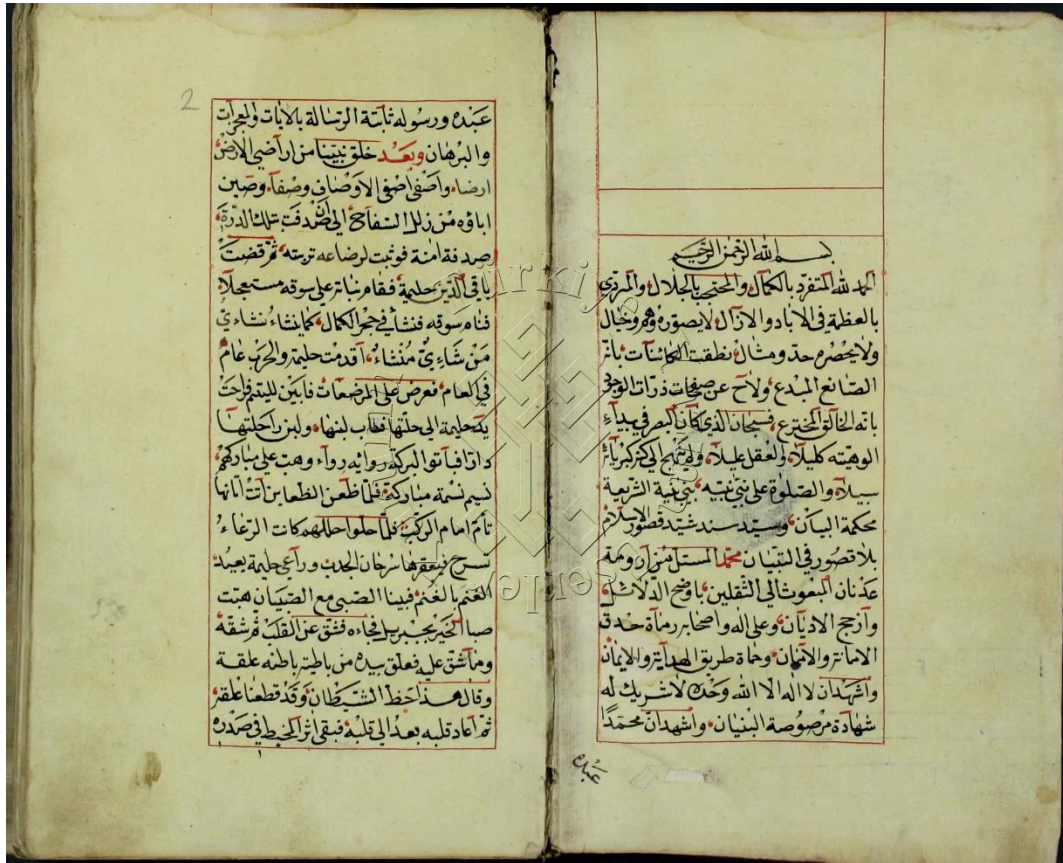 بسم الله الرحمن الرحيم
الحمد لله المتفرد بالكمال والمحتجب بالجلال والمرتدي
بالعظمة في الاباد والازال لا يصوره وهم وخيال
ولا يحصره حد ومثال نطقت الكائنات بانه
الصانع المبدع ولاح عن صفحات ذرات الوجود
بانه الخالق المخترع فسبحان الذي كان البصر في بيداء
الوهيته كليلا والعقل عليلا ولم ينهج الى كبريائه
سبيلا والصلوة على نبي نبيه بني بنية الشريعة
محكمة البيان وسيد سند شيد قصور الاسلام
بلا قصور في التبيان محمد المستل من ارومة
عدنان المبعوث الى الثقلين باوضح الدلائل
وارجح الاديان وعلى اله واصحابه رماة حدق
الامانة والامان وحماة طريق الهداية والايمان
واشهد ان لا اله الا الله وحده لا شريك له
شهادة مرصوصة البنيان واشهد ان محمدا
عبده
2
عبده ورسوله ثابتة الرسالة بالايات والمعجزات
والبرهان وبعد خلق نبينا من اراضي الارض
ارضا واصفى اصفى الاوصاف وصفا وصين
اباؤه من زلل السفاح الى ان صدفت بتلك الدرة
صدفة امنة فوثبت لرضاعه تربته ثم قضت
باقي الدين حليمة فقام نباته على سوقه مستعجلا
فتاه سوقه فنشأ في حجر الكمال كما يشاء نشاءي
من شاءي منشاء اقدمت حليمة والحرب عام
في العام فعرض على المرضعات فابين لليتم فراحت
يد حليمة الى حلتها فطاب لبنها ولبن راحلتها
دارا فباتوا البركة روائه رواء وهب على مباركهم
نسيم نسمة مباركة فلما ظعن الظعاين اتت اتانها
تأم امام الركب فلما حلوا حللهم كانت الرعاء
تسرح فيعقرها سرحان الجدب وراعي حليمة يعيد
الغنم بالغنم فبينا الصبي مع الصبيان هبت
صبا الخير بجبريل فجاءه فشق عن القلب ثم شقه
وما شق عليه فعلق بيده من باطية باطنه علقة
وقال هذا حظ الشيطان وقد قطعنا علقه
ثم اعاد قلبه بعد الى قلبه فبقي اثر المخيط في صدره